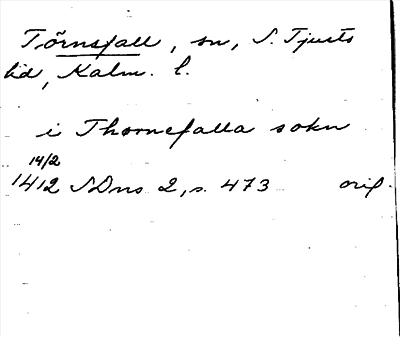 Törnsfall, sn, S. Tjusts
hd, Kalm. l.
i Thornefalla sokn
14/2
1412 SDns 2, s. 473 orig.